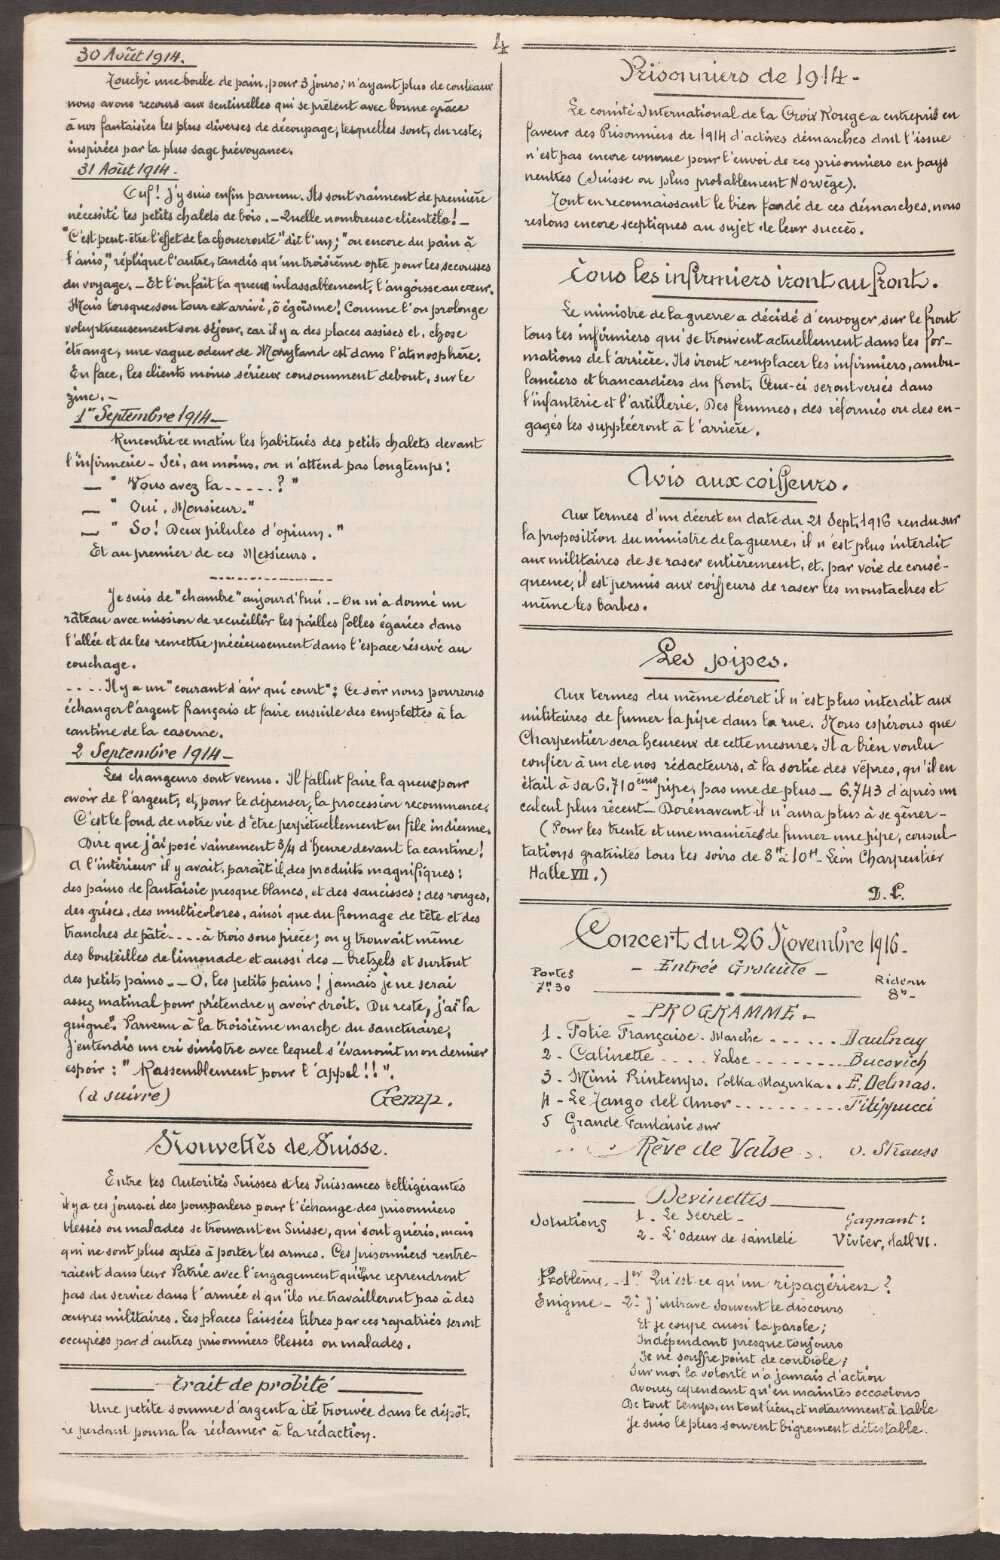 4
30 Août 1914.
Touché une boule de pain, pour 3 jours; n'ayant plus de couteaux
nous avons recours aux sentinelles qui se prêtent avec bonne grâce
à nos fantaisies les plus diverses de découpage, lesquelles sont, du reste,
inspirées par la plus sage prévoyance.
31 Août 1914.
Ouf! J'y suis enfin parvenu. Ils sont vraiment de première
nécessité les petits chalets de bois. - Quelle nombreuse clientèle! -
"C'est peut-être l'effet de la choucroute" dit l'un; "ou encore du pain à
l'anis," réplique l'autre, tandis qu'un troisième opte pour les secousses
du voyage. - Et l'on fait la queue inlassablement, l'angoisse au cœur.
Mais lorsque son tour est arrivé, ô égoïsme! Comme l'on prolonge
voluptueusement son séjour, car il y a des places assises et, chose
étrange, une vague odeur de Maryland est dans l'atmosphère.
En face, les clients moins sérieux consomment debout, sur le
zinc. -
1er Septembre 1914 -
Rencontré ce matin les habitués des petits chalets devant
l'infirmerie - Ici, au moins, on n'attend pas longtemps:
- " Vous avez la ..... ? "
- " Oui, Monsieur. "
- " So! Deux pilules d'opium. "
Et au premier de ces Messieurs.
Je suis de "chambre" aujourd'hui. - On m'a donné un
râteau avec mission de recueillir les pailles folles égarées dans
l'allée et de les remettre précieusement dans l'espace réservé au
couchage.
.... Il y a un "courant d'air qui court": Ce soir nous pourrons
échanger l'argent français et faire ensuite des emplettes à la
cantine de la caserne.
2 Septembre 1914 -
Les changeurs sont venus. Il fallut faire la queue pour
avoir de l'argent, et, pour le dépenser, la procession recommence.
C'est le fond de notre vie d'être perpétuellement en file indienne.
Dire que j'ai posé vainement 3/4 d'heure devant la cantine!
A l'intérieur il y avait, paraît-il, des produits magnifiques:
des pains de fantaisie presque blancs, et des saucisses: des rouges,
des grises, des multicolores, ainsi que du fromage de tête et des
tranches de pâté .... à trois sous pièce; on y trouvait même
des bouteilles de limonade et aussi des - bretzels et surtout
des petits pains. - O, les petits pains! jamais je ne serai
assez matinal pour prétendre y avoir droit. Du reste, j'ai la
guigne. Parvenu à la troisième marche du sanctuaire,
j'entendis un cri sinistre avec lequel s'évanouit mon dernier
espoir: " Rassemblement pour l'appel!! ".
(à suivre) Gemp.
Nouvelles de Suisse.
Entre les Autorités Suisses et les Puissances belligérantes
il y a ces jours-ci des pourparlers pour l'échange des prisonniers
blessés ou malades se trouvant en Suisse, qui sont guéris, mais
qui ne sont plus aptes à porter les armes. Ces prisonniers rentre-
raient dans leur Patrie avec l'engagement qu'ils ne reprendront
pas du service dans l'armée et qu'ils ne travailleront pas à des
œuvres militaires. Les places laissées libres par ces rapatriés seront
occupées par d'autres prisonniers blessés ou malades.
Trait de probité
Une petite somme d'argent a été trouvée dans le dépôt.
Le perdant pourra la réclamer à la rédaction.
Prisonniers de 1914 -
Le comité International de la Croix Rouge a entrepris en
faveur des Prisonniers de 1914 d'actives démarches dont l'issue
n'est pas encore connue pour l'envoi de ces prisonniers en pays
neutres (Suisse ou plus probablement Norvège).
Tout en reconnaissant le bien fondé de ces démarches, nous
restons encore sceptiques au sujet de leur succès.
Tous les infirmiers iront au front.
Le ministre de la guerre a décidé d'envoyer sur le front
tous les infirmiers qui se trouvent actuellement dans les for-
mations de l'arrière. Ils iront remplacer les infirmiers, ambu-
lanciers et brancardiers du front. Ceux-ci seront versés dans
l'infanterie et l'artillerie. Des femmes, des réformés ou des en-
gagés les suppléeront à l'arrière.
Avis aux coiffeurs.
Aux termes d'un décret en date du 21 Sept. 1916 rendu sur
la proposition du ministre de la guerre, il n'est plus interdit
aux militaires de se raser entièrement, et, par voie de consé-
quence, il est permis aux coiffeurs de raser les moustaches et
même les barbes.
Les pipes.
Aux termes du même décret il n'est plus interdit aux
militaires de fumer la pipe dans la rue. Nous espérons que
Charpentier sera heureux de cette mesure. Il a bien voulu
confier à un de nos rédacteurs, à la sortie des vêpres, qu'il en
était à sa 6.710ème pipe, pas une de plus - 6.743 d'après un
calcul plus récent - Dorénavant il n'aura plus à se gêner -
(Pour les trente et une manières de fumer une pipe, consul-
tations gratuites tous les soirs de 8H à 10H - Léon Charpentier
Halle VII.)
D.L.
Concert du 26 Novembre 1916 -
- Entrée Gratuite -
Portes
7h 30
Rideau
8h -
- PROGRAMME -
1 - Folie Française - Marche ...... Daulnay
2 - Catinette .... Valse ...... Bucovich
3 - Mimi Printemps. Polka Mazurka .. E. Delmas.
4 - Le Tango del Amor .......... Filippucci
5 Grande Fantaisie sur
Rêve de Valse . O. Strauss
Devinettes
Solutions
1 - Le Secret -
2 - L'Odeur de sainteté
Gagnant:
Vivier, Hall VI.
Problème. - 1er Qu'est-ce qu'un ripagérien?
Enigme - 2e J'entrave souvent le discours
Et je coupe aussi la parole;
Indépendant presque toujours
Je ne souffre point de contrôle;
Sur moi la volonté n'a jamais d'action
Avouez cependant qu'en maintes occasions
De tout temps, en tout lieu, et notamment à table
Je suis le plus souvent bigrement détestable.